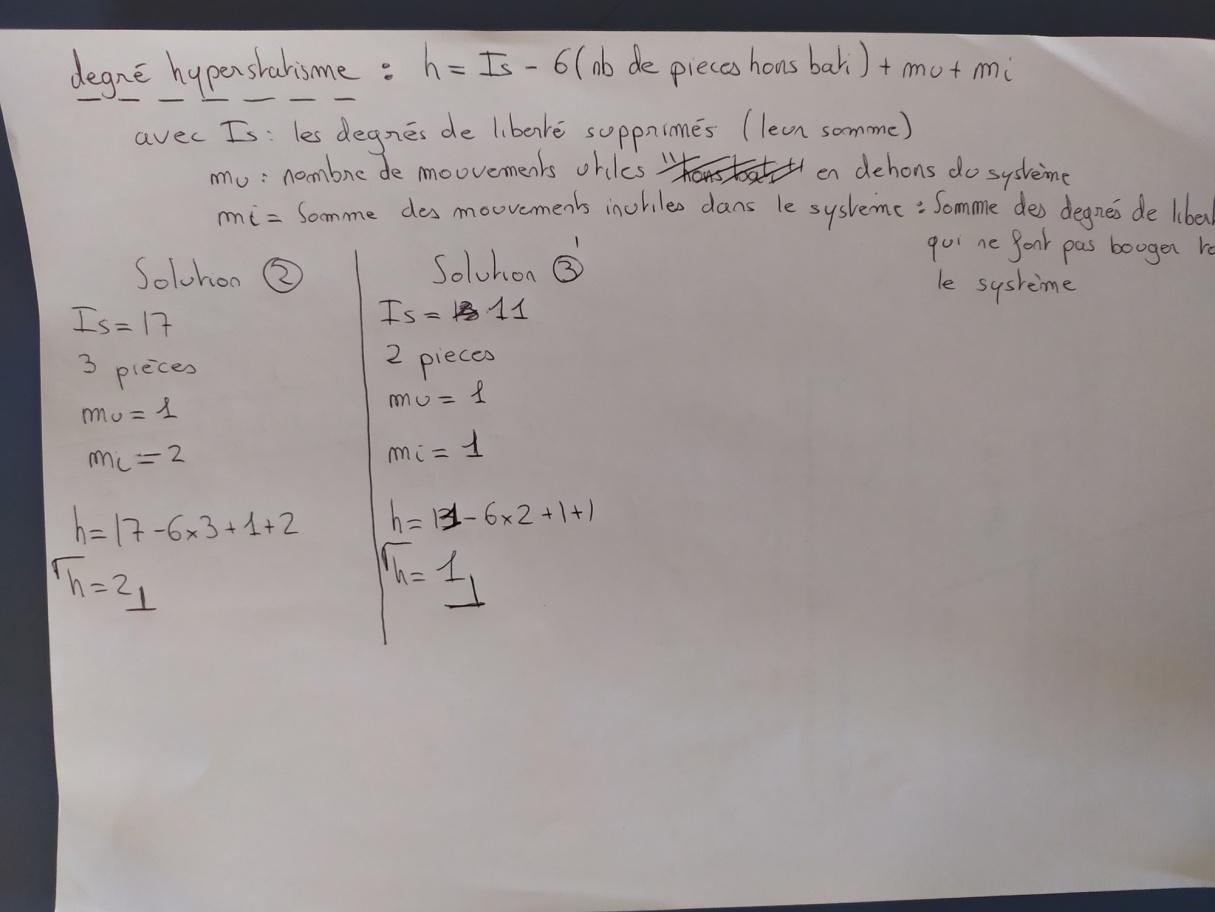 degré hyperstatisme : h = Is - 6 (nb de pieces hors bati) + mu + mi
avec Is : les degrés de liberté supprimés (leur somme)
mu : nombre de mouvements utiles en dehors du système
mi = Somme des mouvements inutiles dans le système : Somme des degrés de liber
qui ne font pas bouger
le système
Solution ②
Is = 17
3 pièces
mu = 1
mi = 2
h = 17 - 6x3 + 1 + 2
h = 2
Solution ③'
Is = 11
2 pieces
mu = 1
mi = 1
h = 11 - 6x2 + 1 + 1
h = 1